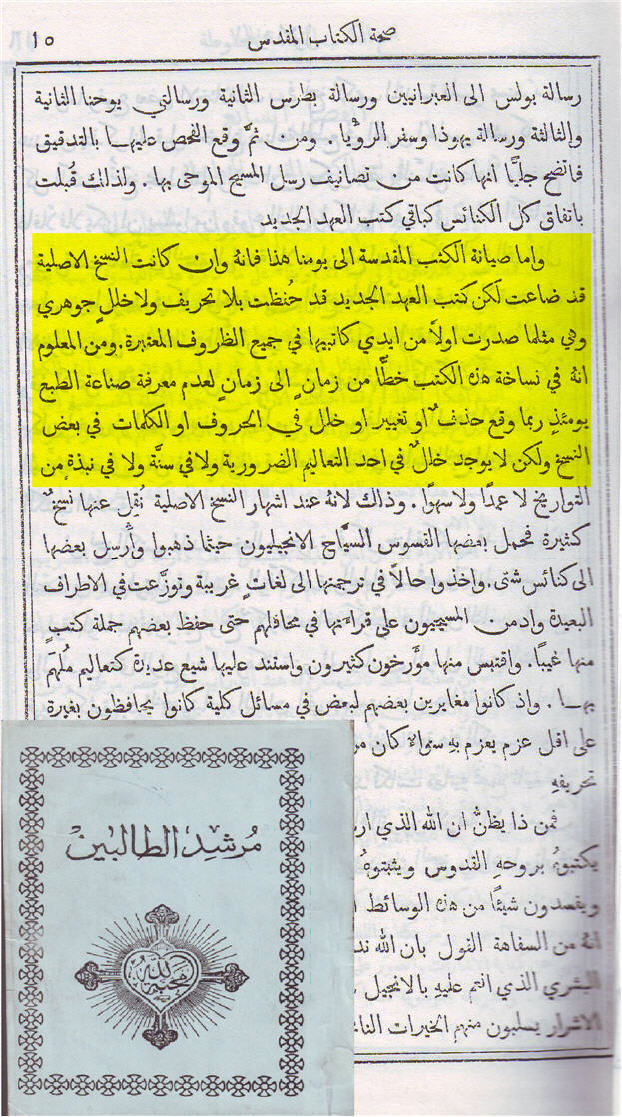 صحة الكتاب المقدس ١٥
رسالة بولس الى العبرانيين ورسالة بطرس الثانية ورسالتي يوحنا الثانية
والثالثة ورسالة يهوذا وسفر الرؤيا . ومن ثمَّ وقع الفحص عليها بالتدقيق
فاتضح جليًّا انها كانت من تصانيف رسل المسيح الموحى بها . ولذلك قُبلت
باتفاق كل الكنائس كباقي كتب العهد الجديد
واما صيانة الكتب المقدسة الى يومنا هذا فانهُ وان كانت النسخ الاصلية
قد ضاعت لكن كتب العهد الجديد قد حُفظت بلا تحريف ولا خللٍ جوهري
وهي مثلما صدرت اولًا من ايدي كاتبيها في جميع الظروف المعتبرة . ومن المعلوم
انهُ في نساخة هذه الكتب خطًّا من زمانٍ الى زمانٍ لعدم معرفة صناعة الطبع
يومئذٍ ربما وقع حذفٌ او تغيير او خلل في الحروف او الكلمات في بعض
النسخ ولكن لا يوجد خللٌ في احد التعاليم الضرورية ولا في سنَّة ولا في نبذةٍ من
التواريخ لا عمدًا ولا سهوًا . وذلك لانهُ عند اشهار النسخ الاصلية نُقل عنها نسخٌ
كثيرة فحمل بعضها القسوس السيَّاح الانجيليون حيثما ذهبوا وأُرسل بعضها
الى كنائس شتى . واخذوا حالًا في ترجمتها الى لغاتٍ غريبة وتوزَّعت في الاطراف
البعيدة وادمن المسيحيون على قراءتها في محافلهم حتى حفظ بعضهم جملة كتبٍ
منها غيبًا . واقتبس منها مؤرخون كثيرون واستند عليها شيع عديدة كتعاليم مُلهَم
بها . واذ كانوا مغايرين بعضهم لبعض في مسائل كلية كانوا يحافظون بغيرة
على اقل عزم يعزم بهِ سواءٌ كان
تحريفهِ
فمن ذا يظنُّ ان الله الذي
يكتبوهُ بروحهِ القدوس ويثبتوهُ
ويفسدون شيئًا من هذه الوسائط
انهُ من السفاهة القول بان الله
البشري الذي انعم عليهِ بالانجيل
الاشرار يسلبون منهم الخيرات
مُرشد الطالبين
محبة الله